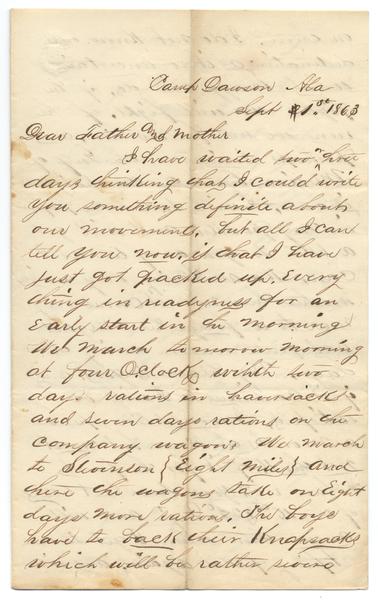 Camp Dawson Ala
Sept 1st. 1863
Dear Father and Mother
I have waited two or three
days thinking that I could write
you something definite about
our movement, but all I can
tell you now. is that I have
just got packed up. Every
thing in readyness for an
Early start in the morning
We March to morrow morning
at four O,clock with two
days rations in haversacks
and seven days rations on the
company wagon. We march
to Stevenson {Eight miles} and
here the wagons take on Eight
days more rations. The boys
have to back their Knapsacks
which will be rather severe